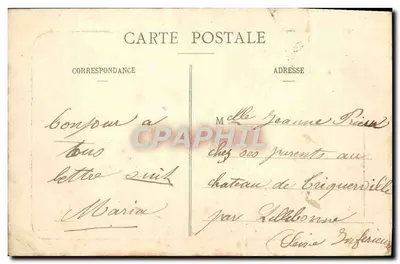 CARTE POSTALE
CORRESPONDANCE
ADRESSE
Bonjour a
tous
lettre suit
Maria
Melle Jeanne
chez ses parents au
chateau de Triquerville
par Lillebonne
(Seine Inferieure
CPArama.com